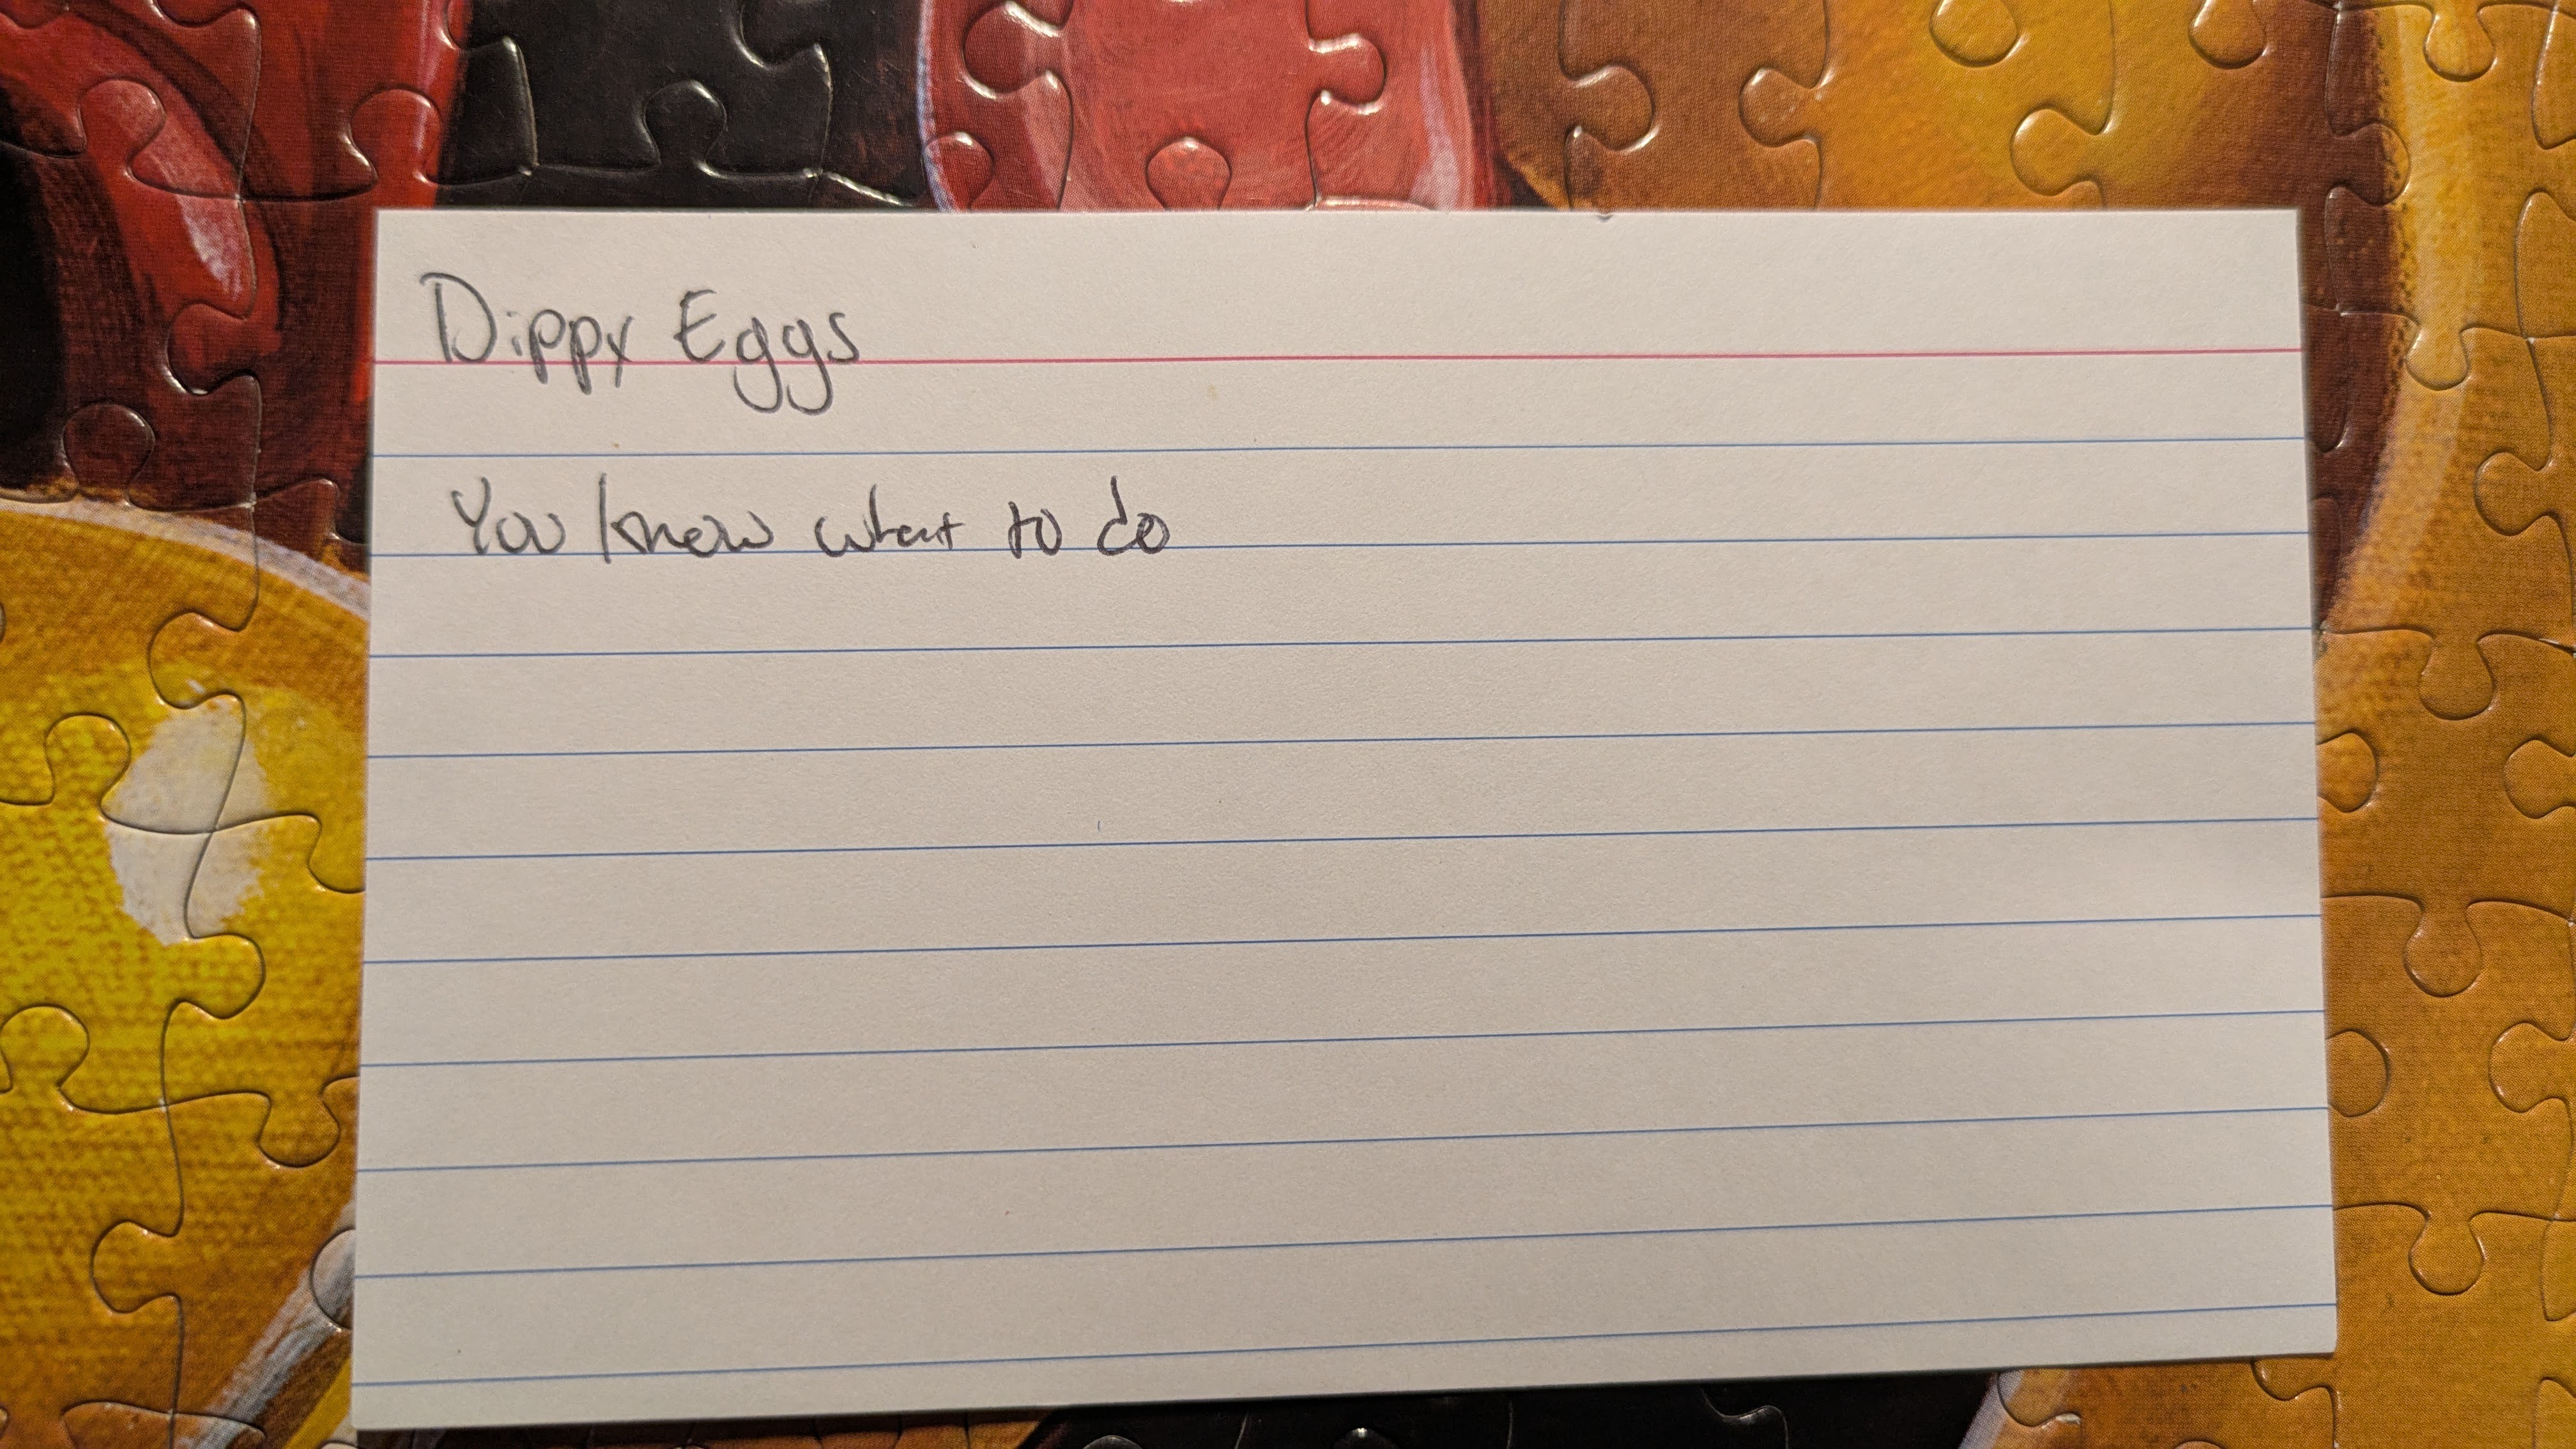 Dippy Eggs
You know what to do